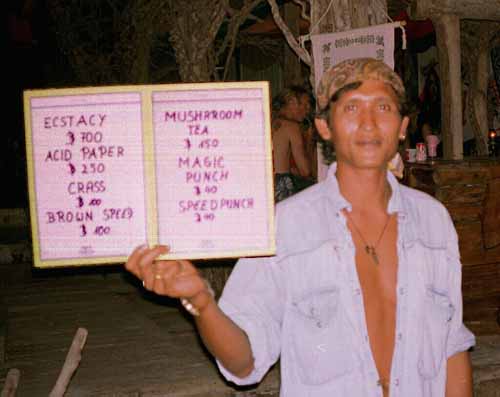 ECSTACY
$ 700
ACID PAPER
$ 250
CRASS
$ 100
BROWN SPEED
$ 100
MUSHAROOM
TEA
$ 150
MAGIC
PUNCH
$ 40
SPEED PUNCH
$ 90